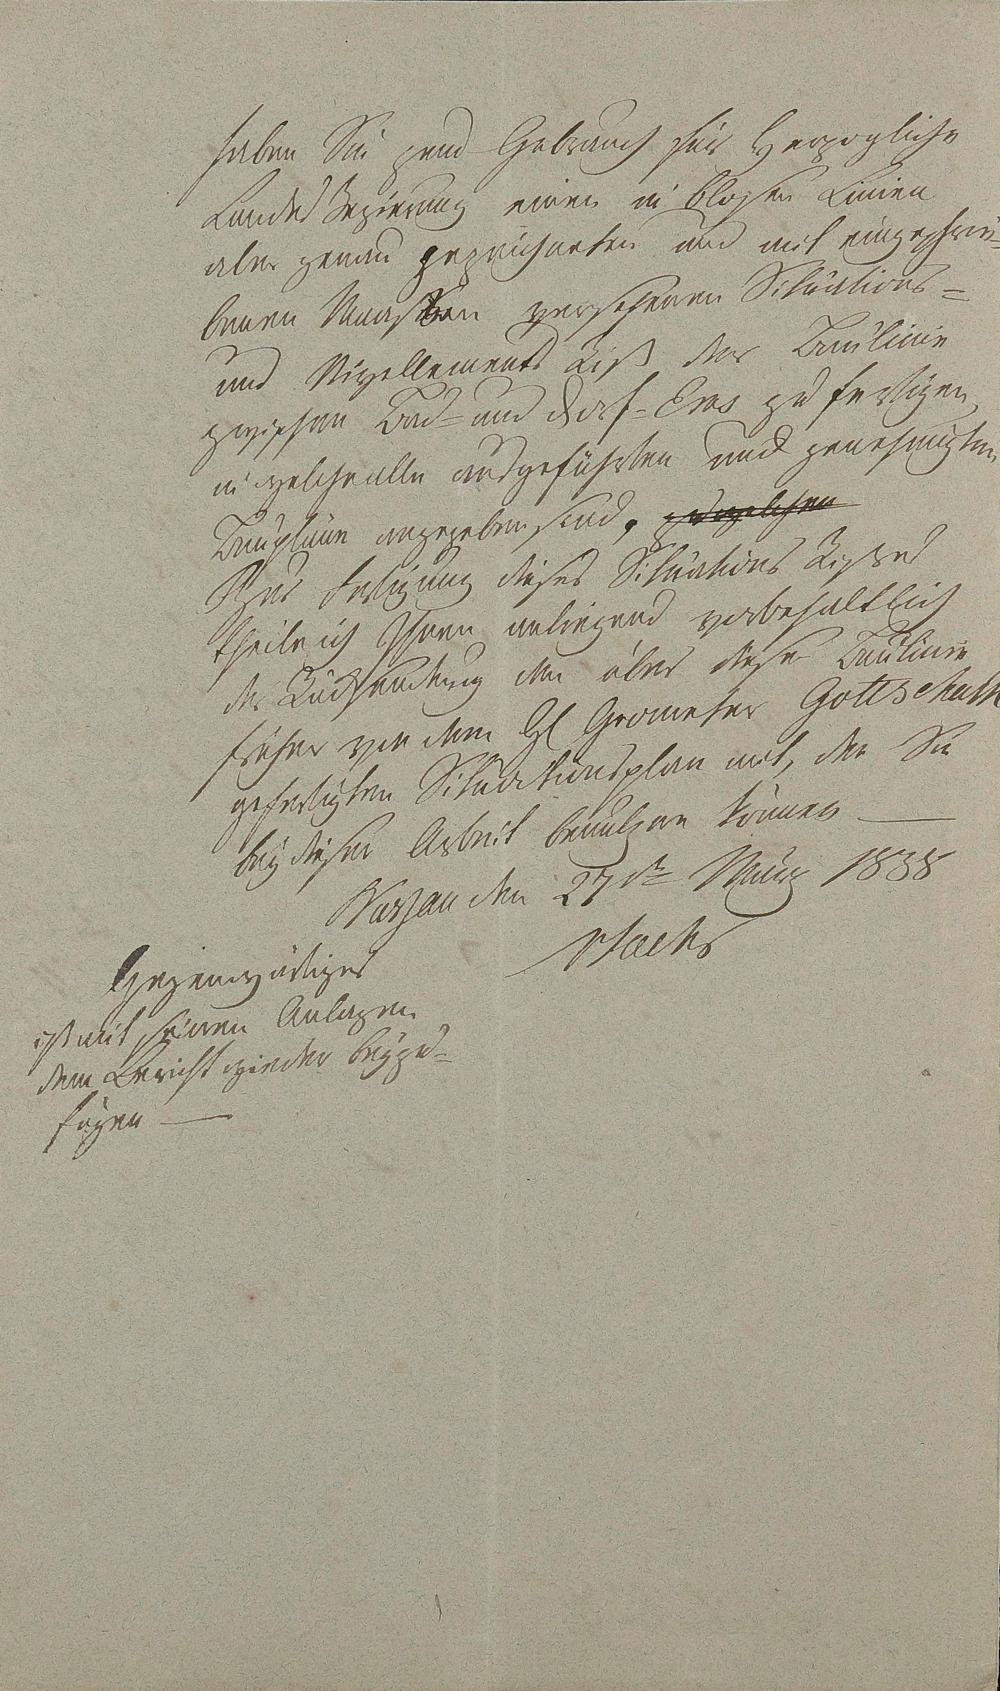 haben Sie zum Gebrauch für Herzogliche
Landes Regierung einen in blosen Linien
aber genau gezeichneten und mit eingeschrie-
benen Maasen versehenen Situations-
und Nivellements Riß der Baulinie
zwischen Bad- und Dorf-Ems zu fertigen,
in welche alle ausgeführten und genehmigten
Baupläne angegeben sind. zu welchem
Zur Fertigung dieses Situations Risses
theile ich Ihnen anliegend vorbehaltlich
der Rücksendung den über diese Baulinie
früher von dem H Geometer Gottschalk
gefertigten Situationsplan mit, den Sie
bey dieser Arbeit benutzen können —
Nassau den 27ten März 1838
Gegenwärtiges
ist mit seinen Anlagen
dem Bericht wieder beyzu-
fügen —